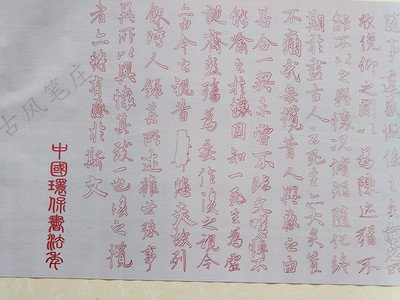 隨事遷感慨係之矣向之所
欣俛仰之間以為陳迹猶不
能不以之興懷況脩短隨化終
期於盡古人云死生亦大矣豈
不痛哉每攬昔人興感之由
若合一契未嘗不臨文嗟悼不
能喻之於懷固知一死生為虛
誕齊彭殤為妄作後之視今
亦由今之視昔悲夫故列
敘時人錄其所述雖世殊事
異所以興懷其致一也後之攬
者亦將有感於斯文
中國環保書法布
古风笔庄